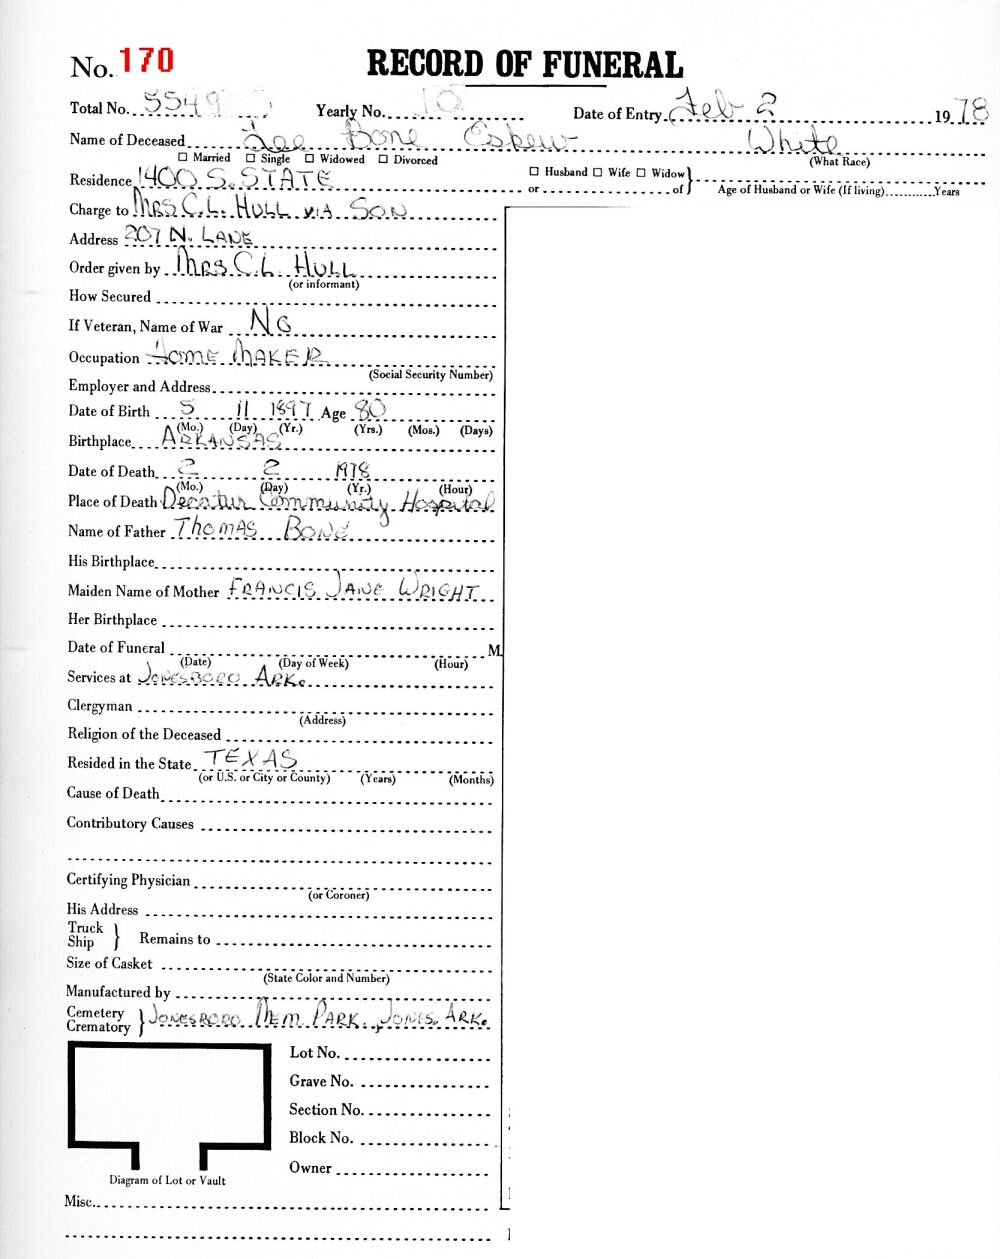 No. 170 RECORD OF FUNERAL
Total No. 5549 Yearly No. 10 Date of Entry Feb 2 1978
Name of Deceased Lee Bone Eskew White
☐ Married ☐ Single ☐ Widowed ☐ Divorced (What Race)
Residence 1400 S. STATE ☐ Husband ☐ Wife ☐ Widow } or of Age of Husband or Wife (If living) Years
Charge to MRS C.L. HULL VIA SON
Address 207 N. LANE
Order given by MRS C.L. HULL
(or informant)
How Secured
If Veteran, Name of War NO
Occupation HOME MAKER
(Social Security Number)
Employer and Address
Date of Birth 5 11 1897 Age 80
(Mo.) (Day) (Yr.) (Yrs.) (Mos.) (Days)
Birthplace ARKANSAS
Date of Death 2 2 1978
(Mo.) (Day) (Yr.) (Hour)
Place of Death Decatur Community Hospital
Name of Father THOMAS BONE
His Birthplace
Maiden Name of Mother FRANCIS JANE WRIGHT
Her Birthplace
Date of Funeral M.
(Date) (Day of Week) (Hour)
Services at JONESBORO ARK.
Clergyman
(Address)
Religion of the Deceased
Resided in the State TEXAS
(or U.S. or City or County) (Years) (Months)
Cause of Death
Contributory Causes
Certifying Physician
(or Coroner)
His Address
Truck
Ship } Remains to
Size of Casket
(State Color and Number)
Manufactured by
Cemetery
Crematory } JONESBORO MEM. PARK, JONES. ARK.
Lot No.
Grave No.
Section No.
Block No.
Owner
Diagram of Lot or Vault
Misc.